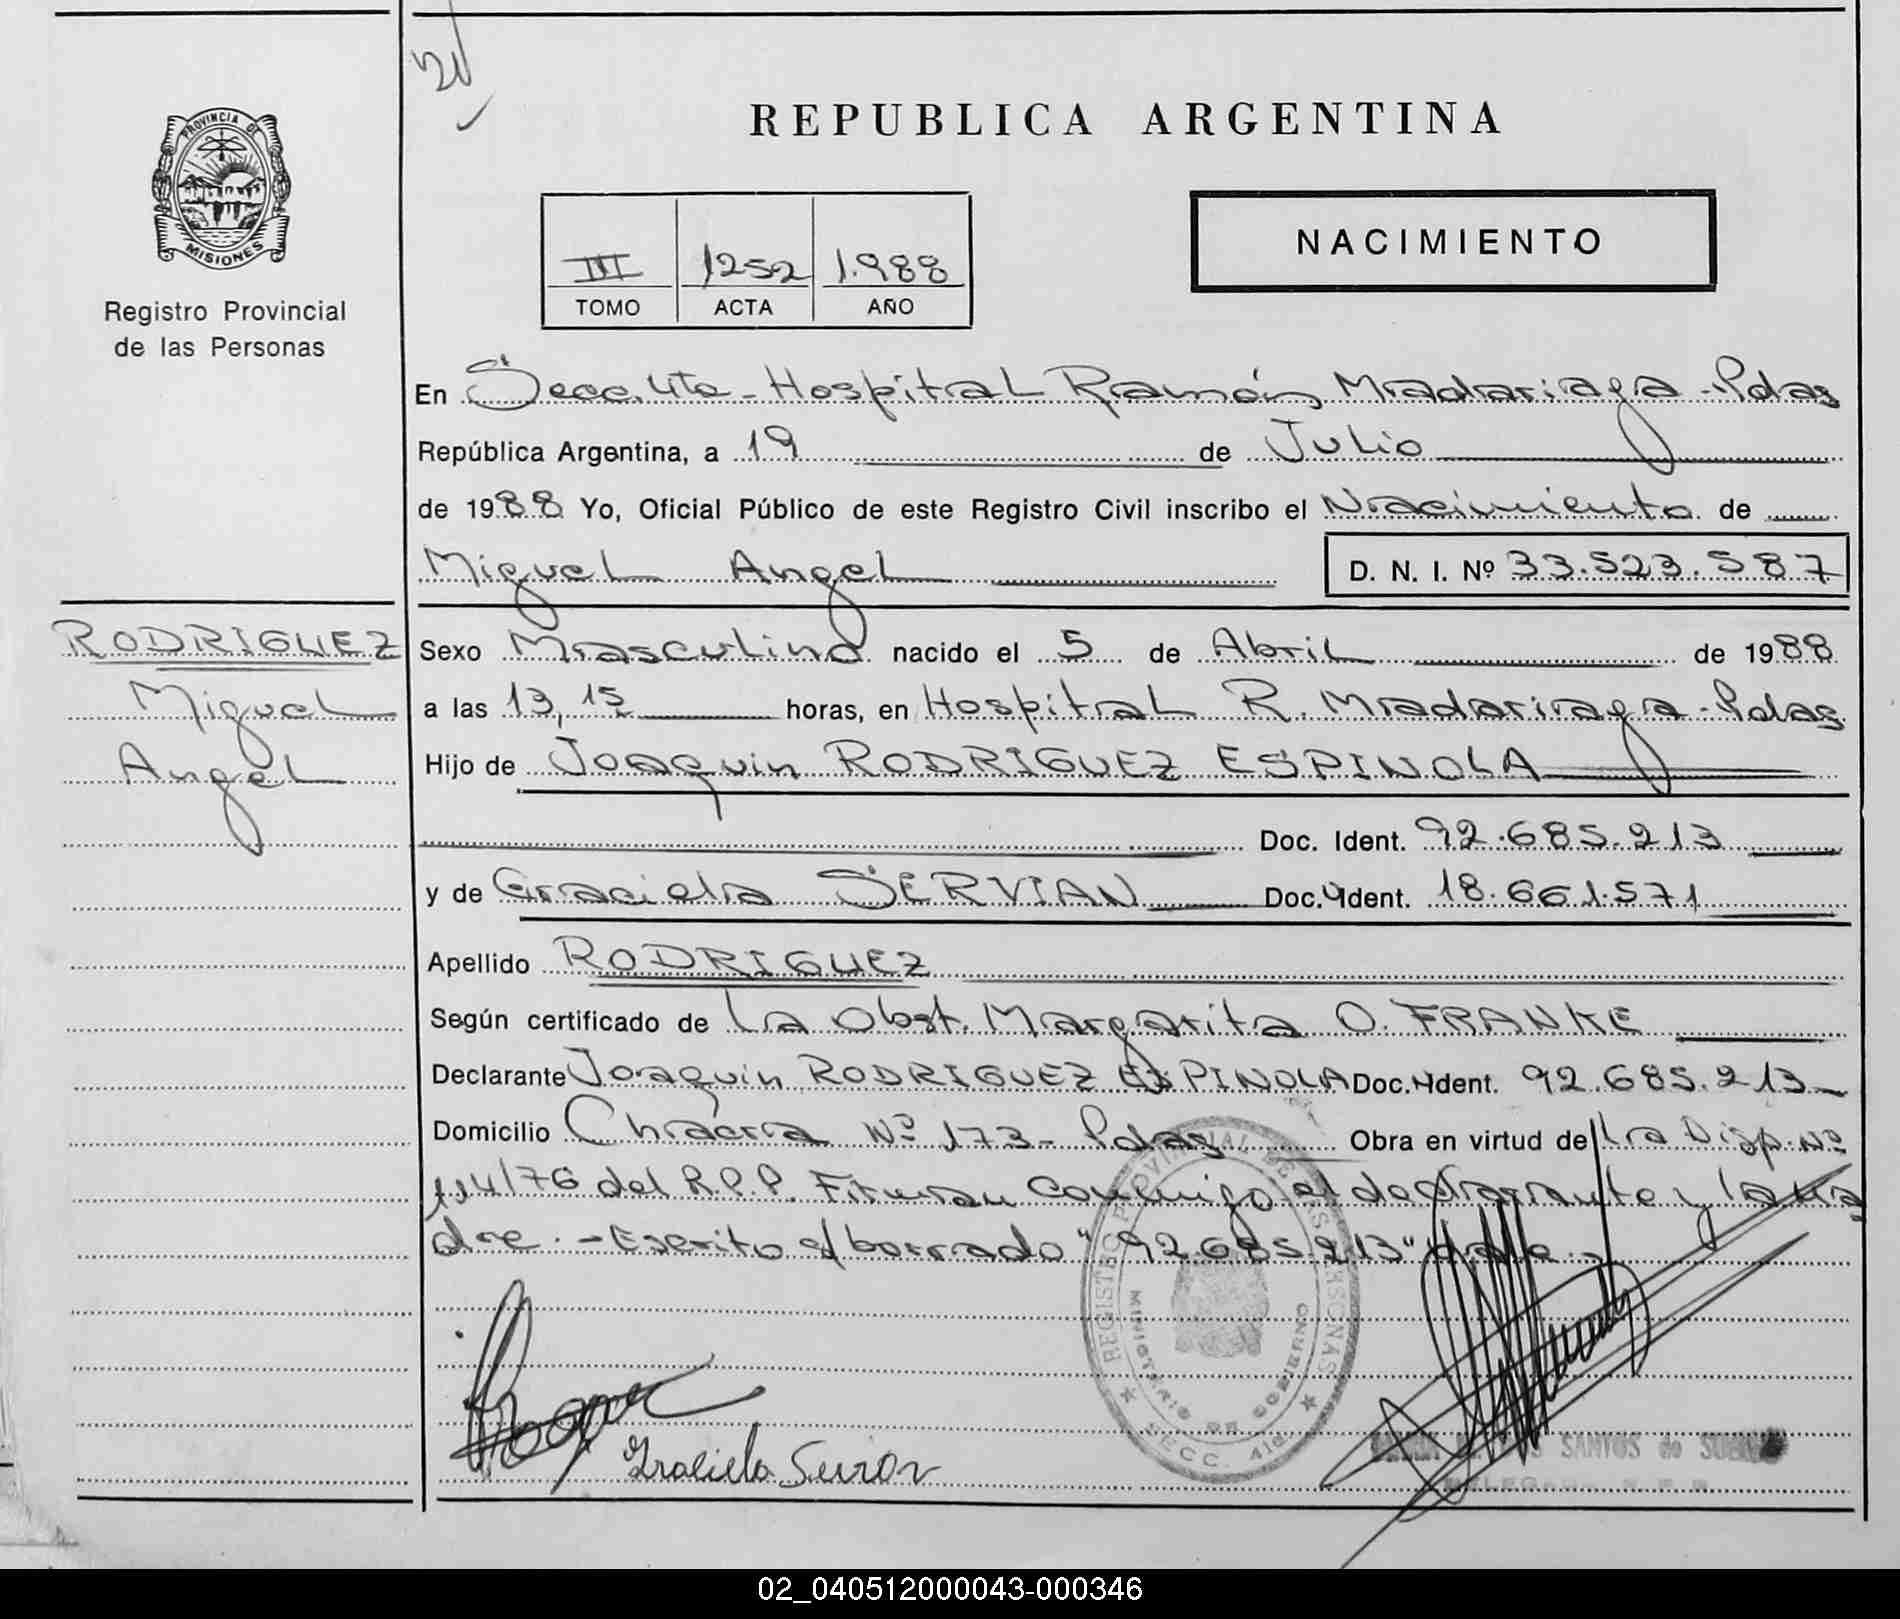 21
REPUBLICA ARGENTINA
PROVINCIA DE
MISIONES
Registro Provincial
de las Personas
III 1252 1.988
TOMO ACTA AÑO
NACIMIENTO
En Secc. 4ta - Hospital Ramón Madariaga - Pdas
República Argentina, a 19 de Julio
de 1988 Yo, Oficial Público de este Registro Civil inscribo el Nacimiento de
Miguel Angel D. N. I. Nº 33.523.587
RODRIGUEZ
Miguel
Angel
Sexo Masculino nacido el 5 de Abril de 1988
a las 13,15 horas, en Hospital R. Madariaga - Pdas
Hijo de Joaquin RODRIGUEZ ESPINOLA
Doc. Ident. 92.685.213
y de Graciela SERVIAN Doc. Ident. 18.661.571
Apellido RODRIGUEZ
Según certificado de La Obst. Margarita O. FRANKE
Declarante Joaquin RODRIGUEZ ESPINOLA Doc. Ident. 92.685.213
Domicilio Chacra Nº 173 - Pdas Obra en virtud de La Disp. Nº
114/76 del R.P.P. Firman conmigo el declarante y la ma
dre. - Escrito s/ borrado "92.685.213" Vale. -
REGISTRO PROVINCIAL DE LAS PERSONAS
MINISTERIO DE GOBIERNO
SECC. 4ta
Graciela Servian
SANTOS de
02_040512000043-000346